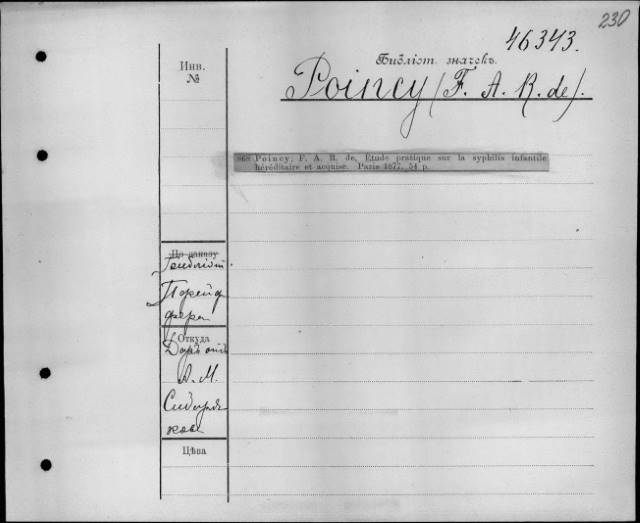 230
46343.
Инв.
№
Библіот. значекъ.
Poincy (F. A. R. de).
868 Poincy, F. A. R. de, Etude pratique sur la syphilis infantile
héréditaire et acquise. Paris 1877. 54 p.
По заказу
Библіот.
Порейф
фера
Откуда
Даръ отъ
А. М.
Сибиря
кова
Цѣна